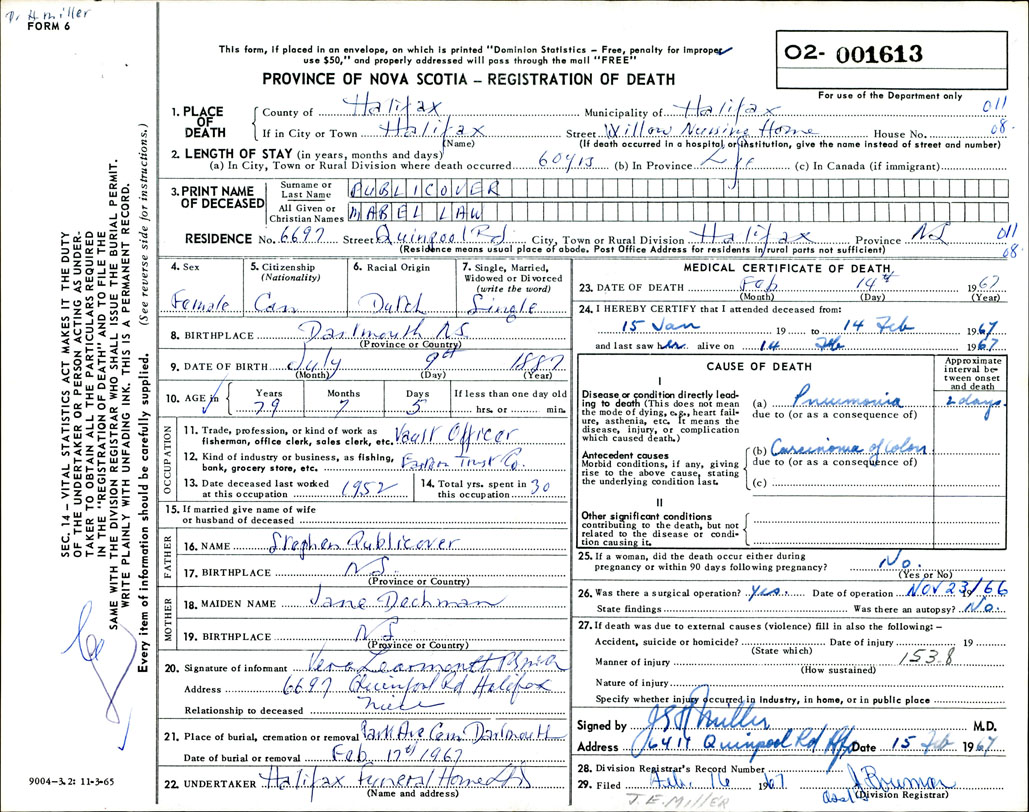 Dr H Miller
FORM 6
This form, if placed in an envelope, on which is printed "Dominion Statistics – Free, penalty for improper
use $50," and properly addressed will pass through the mail "FREE"
PROVINCE OF NOVA SCOTIA – REGISTRATION OF DEATH
O2- 001613
For use of the Department only
1. PLACE OF DEATH
County of Halifax Municipality of Halifax 011
If in City or Town Halifax Street Willow Nursing Home House No. 08
(Name) (If death occurred in a hospital or institution, give the name instead of street and number)
2. LENGTH OF STAY (in years, months and days)
(a) In City, Town or Rural Division where death occurred 60 yrs (b) In Province Life (c) In Canada (if immigrant)
3. PRINT NAME OF DECEASED
Surname or Last Name PUBLICOVER
All Given or Christian Names MABEL LAW
RESIDENCE No. 6697 Street Quinpool Rd City, Town or Rural Division Halifax Province NS 011
(Residence means usual place of abode. Post Office Address for residents in rural parts not sufficient) 08
4. Sex Female
5. Citizenship (Nationality) Can
6. Racial Origin Dutch
7. Single, Married, Widowed or Divorced (write the word) Single
8. BIRTHPLACE Dartmouth NS
(Province or Country)
9. DATE OF BIRTH July 9th 1887
(Month) (Day) (Year)
10. AGE in Years 79 Months 7 Days 5 If less than one day old hrs. or min.
OCCUPATION
11. Trade, profession, or kind of work as
fisherman, office clerk, sales clerk, etc. Vault Officer
12. Kind of industry or business, as fishing,
bank, grocery store, etc. Eastern Trust Co.
13. Date deceased last worked
at this occupation 1952
14. Total yrs. spent in
this occupation 30
15. If married give name of wife
or husband of deceased
FATHER
16. NAME Stephen Publicover
17. BIRTHPLACE NS
(Province or Country)
MOTHER
18. MAIDEN NAME Jane Dechman
19. BIRTHPLACE NS
(Province or Country)
20. Signature of informant Vera Learmonth
Address 6697 Quinpool Rd Halifax
Relationship to deceased niece
21. Place of burial, cremation or removal Park Ave Cem Dartmouth
Date of burial or removal Feb 17th 1967
22. UNDERTAKER Halifax Funeral Home Ltd
(Name and address)
MEDICAL CERTIFICATE OF DEATH
23. DATE OF DEATH Feb 14th 1967
(Month) (Day) (Year)
24. I HEREBY CERTIFY that I attended deceased from:
15 Jan 19 to 14 Feb 1967
and last saw her alive on 14 Feb 1967
CAUSE OF DEATH
Approximate interval between onset and death
I
Disease or condition directly leading to death (This does not mean
the mode of dying, e.g., heart failure, asthenia, etc. It means the
disease, injury, or complication
which caused death.)
(a) Pneumonia 2 days.
due to (or as a consequence of)
Antecedent causes
Morbid conditions, if any, giving
rise to the above cause, stating
the underlying condition last.
(b) Carcinoma of Colon
due to (or as a consequence of)
(c)
II
Other significant conditions
contributing to the death, but not
related to the disease or condition causing it.
25. If a woman, did the death occur either during
pregnancy or within 90 days following pregnancy? No.
(Yes or No)
26. Was there a surgical operation? Yes. Date of operation NOV 23/66
State findings Was there an autopsy? No.
27. If death was due to external causes (violence) fill in also the following: –
Accident, suicide or homicide? Date of injury 19
(State which)
Manner of injury 153.8
(How sustained)
Nature of injury
Specify whether injury occurred in industry, in home, or in public place
Signed by Miller M.D.
Address 6417 Quinpool Rd Hfx Date 15 Feb 1967
28. Division Registrar's Record Number
29. Filed Feb. 16 1967 Bowman
(Division Registrar)
J.E. MILLER
SEC. 14 – VITAL STATISTICS ACT MAKES IT THE DUTY
OF THE UNDERTAKER OR PERSON ACTING AS UNDER-
TAKER TO OBTAIN ALL THE PARTICULARS REQUIRED
IN THE "REGISTRATION OF DEATH" AND TO FILE THE
SAME WITH THE DIVISION REGISTRAR WHO SHALL ISSUE THE BURIAL PERMIT.
WRITE PLAINLY WITH UNFADING INK. THIS IS A PERMANENT RECORD.
Every item of information should be carefully supplied. (See reverse side for instructions.)
9004-3.2: 11-3-65